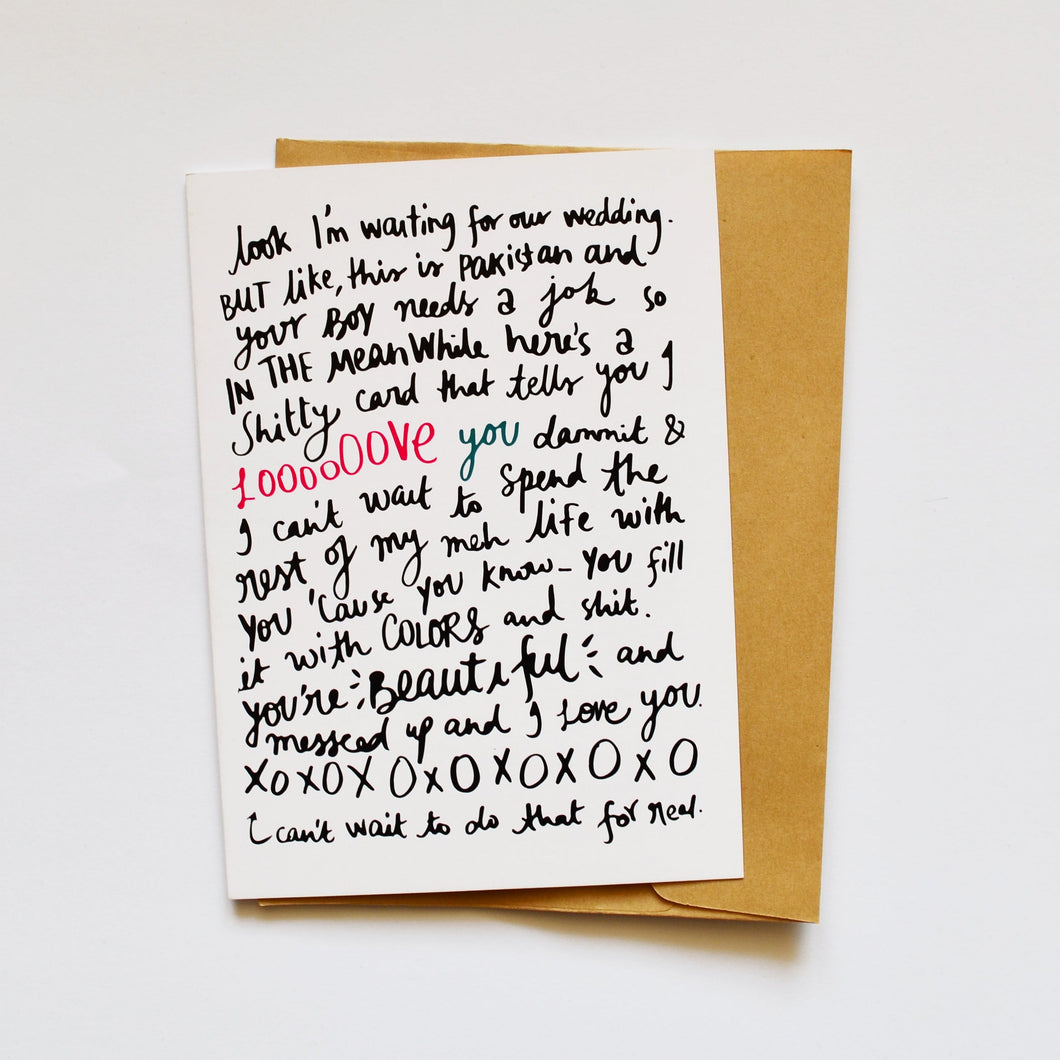 look I'm waiting for our wedding.
BUT like, this is PAKistan and
your BOY needs a job so
IN THE MeanWhile here's a
Shitty card that tells you I
LOOOOOOOVe you dammit &
I can't wait to spend the
rest of my meh life with
you 'cause you know - you fill
it with COLORS and shit.
you're Beautiful and
messed up and I Love you.
XOXOXOXOXOXOXO
can't wait to do that for real.